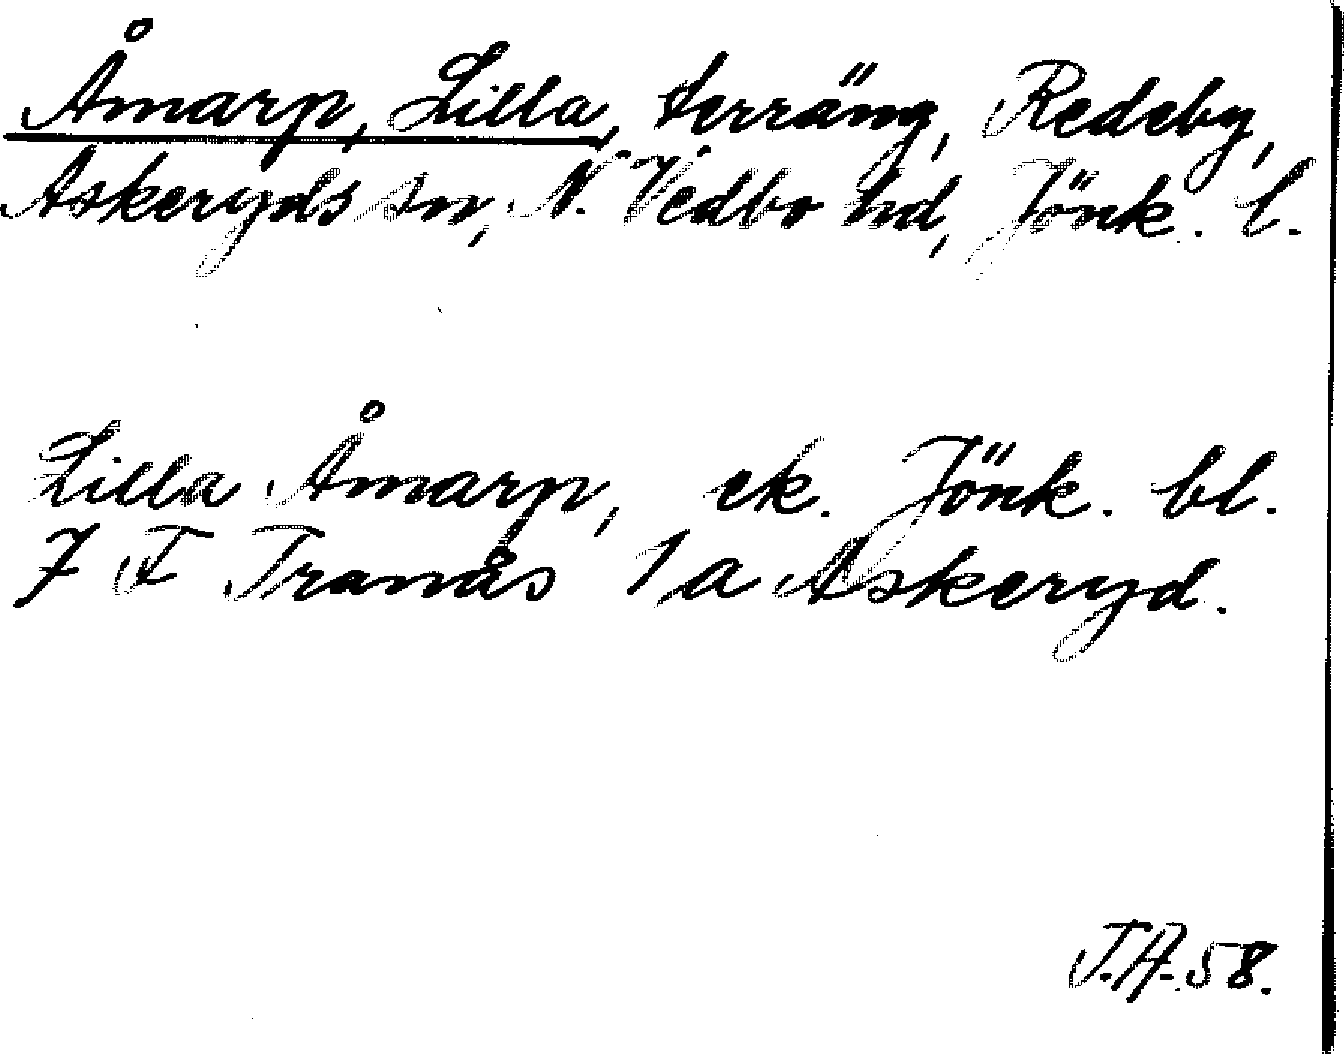 Åmarp, Lilla, terräng, Redeby,
Askeryds sn, N. Vedbo hd, Jönk. l.
Lilla Åmarp, ek. Jönk. bl.
7 F Tranås 1 a Askeryd.
T.A. 58.